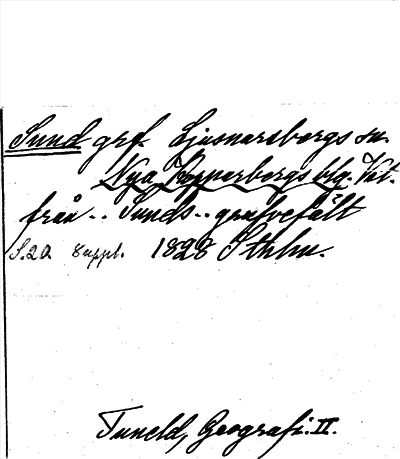 Sund grf. Ljusnarsbergs sn.
Nya Kopparbergs blg. Väst.
från .. Sunds .. grufvefält
S. 20. Suppl. 1828 Sthlm.
Tuneld, Geografi. II.